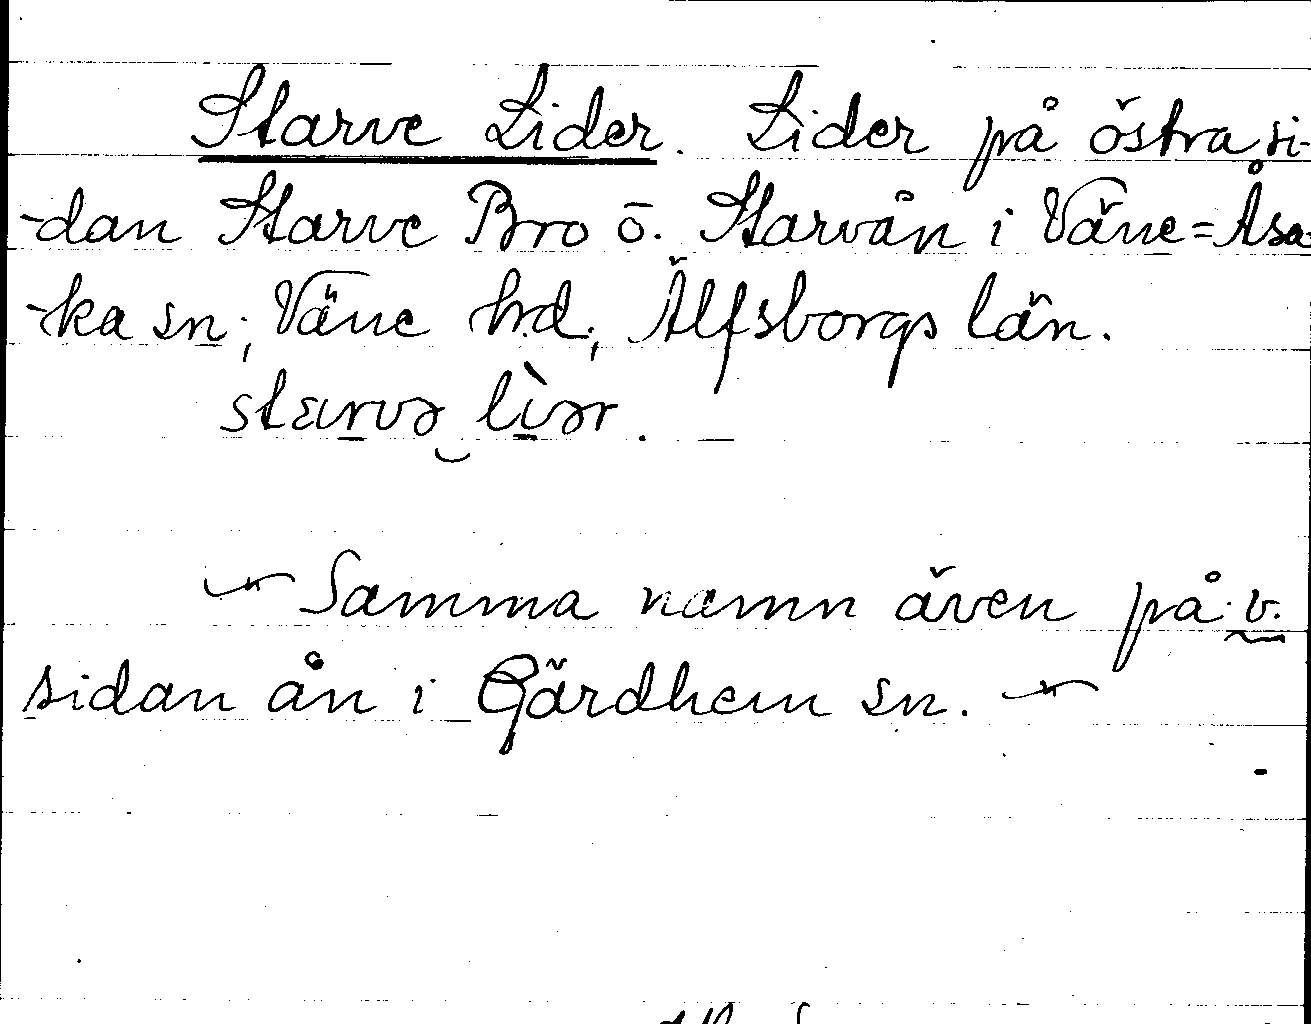 Starve Lider. Lider på östra si-
-dan Starve Bro ö. Starvån i Väne=Åsa-
-ka sn; Väne hd; Älfsborgs län.
starvə lìər.
Samma namn även på v.
sidan ån i Gärdhem sn.